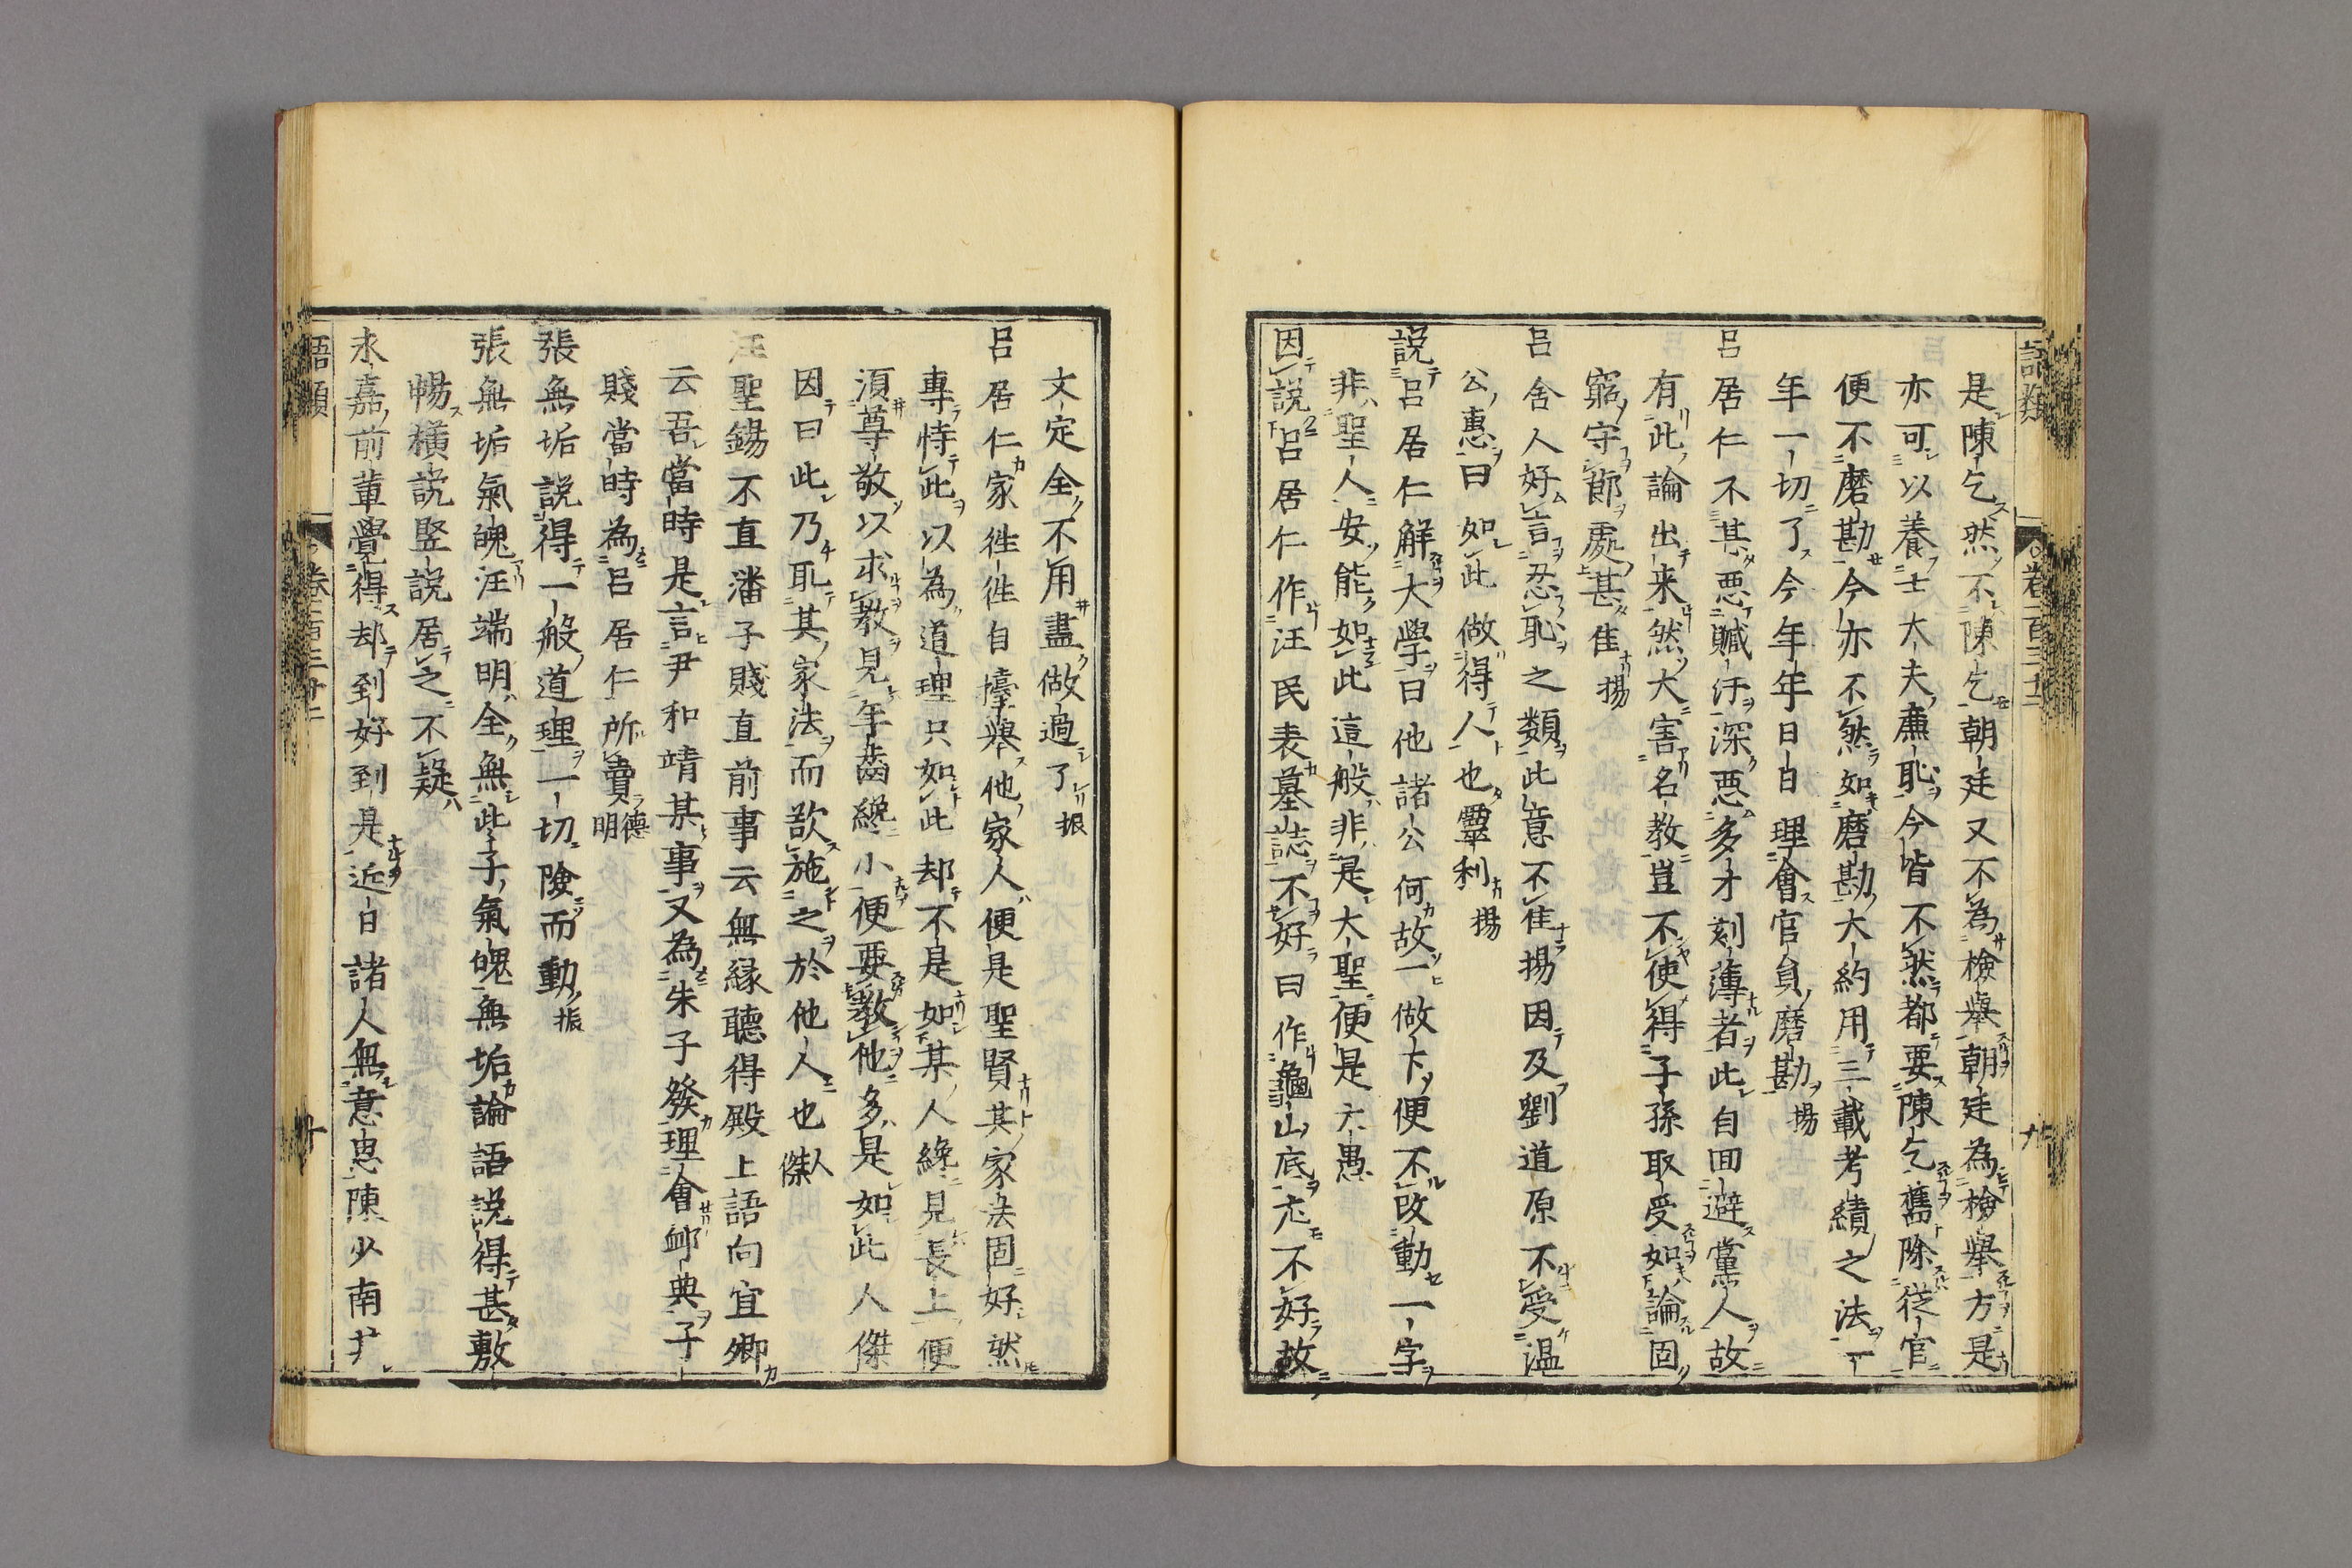 語類 卷一百三十二 九
是陳乞然不陳乞朝廷又不為檢舉朝廷為檢舉方是
亦可以養士大夫廉恥今皆不然都要陳乞舊除從官
便不磨勘今亦不然如磨勘大約用三載考績之法一
年一切了今年年日日理會官員磨勘揚
呂居仁不甚惡贓汙深惡多才刻薄者此自回避黨人故
有此論出来然大害名教豈不使得子孫取受如論固
窮守節處甚佳揚
呂舍人好言忍恥之類此意不佳揚因及劉道原不受温
公惠曰如此做得人也麤利揚
説呂居仁解大學曰他諸公何故一做下便不改動一字
非聖人安能如此這般非是大聖便是大愚
因説呂居仁作汪民表墓誌不好曰作龜山底尤不好故
文定全不用盡做過了振
呂居仁家徃徃自擡舉他家人便是聖賢其家法固好然
專恃此以為道理只如此却不是如某人纔見長上便
須尊敬以求教見年齒纔小便要教他多是如此人傑
因曰此乃恥其家法而欲施之於他人也人傑
汪聖錫不直潘子賤直前事云無縁聽得殿上語向宜卿
云吾當時是言尹和靖某事又為朱子發理會邮典子
賤當時為呂居仁所賣德明
張無垢説得一般道理一切險而動振
張無垢氣魄汪端明全無此子氣魄無垢論語説得甚敷
暢横説竪説居之不疑
永嘉前輩覺得却到好到是近日諸人無意思陳少南尹
語類 卷一百三十二 十